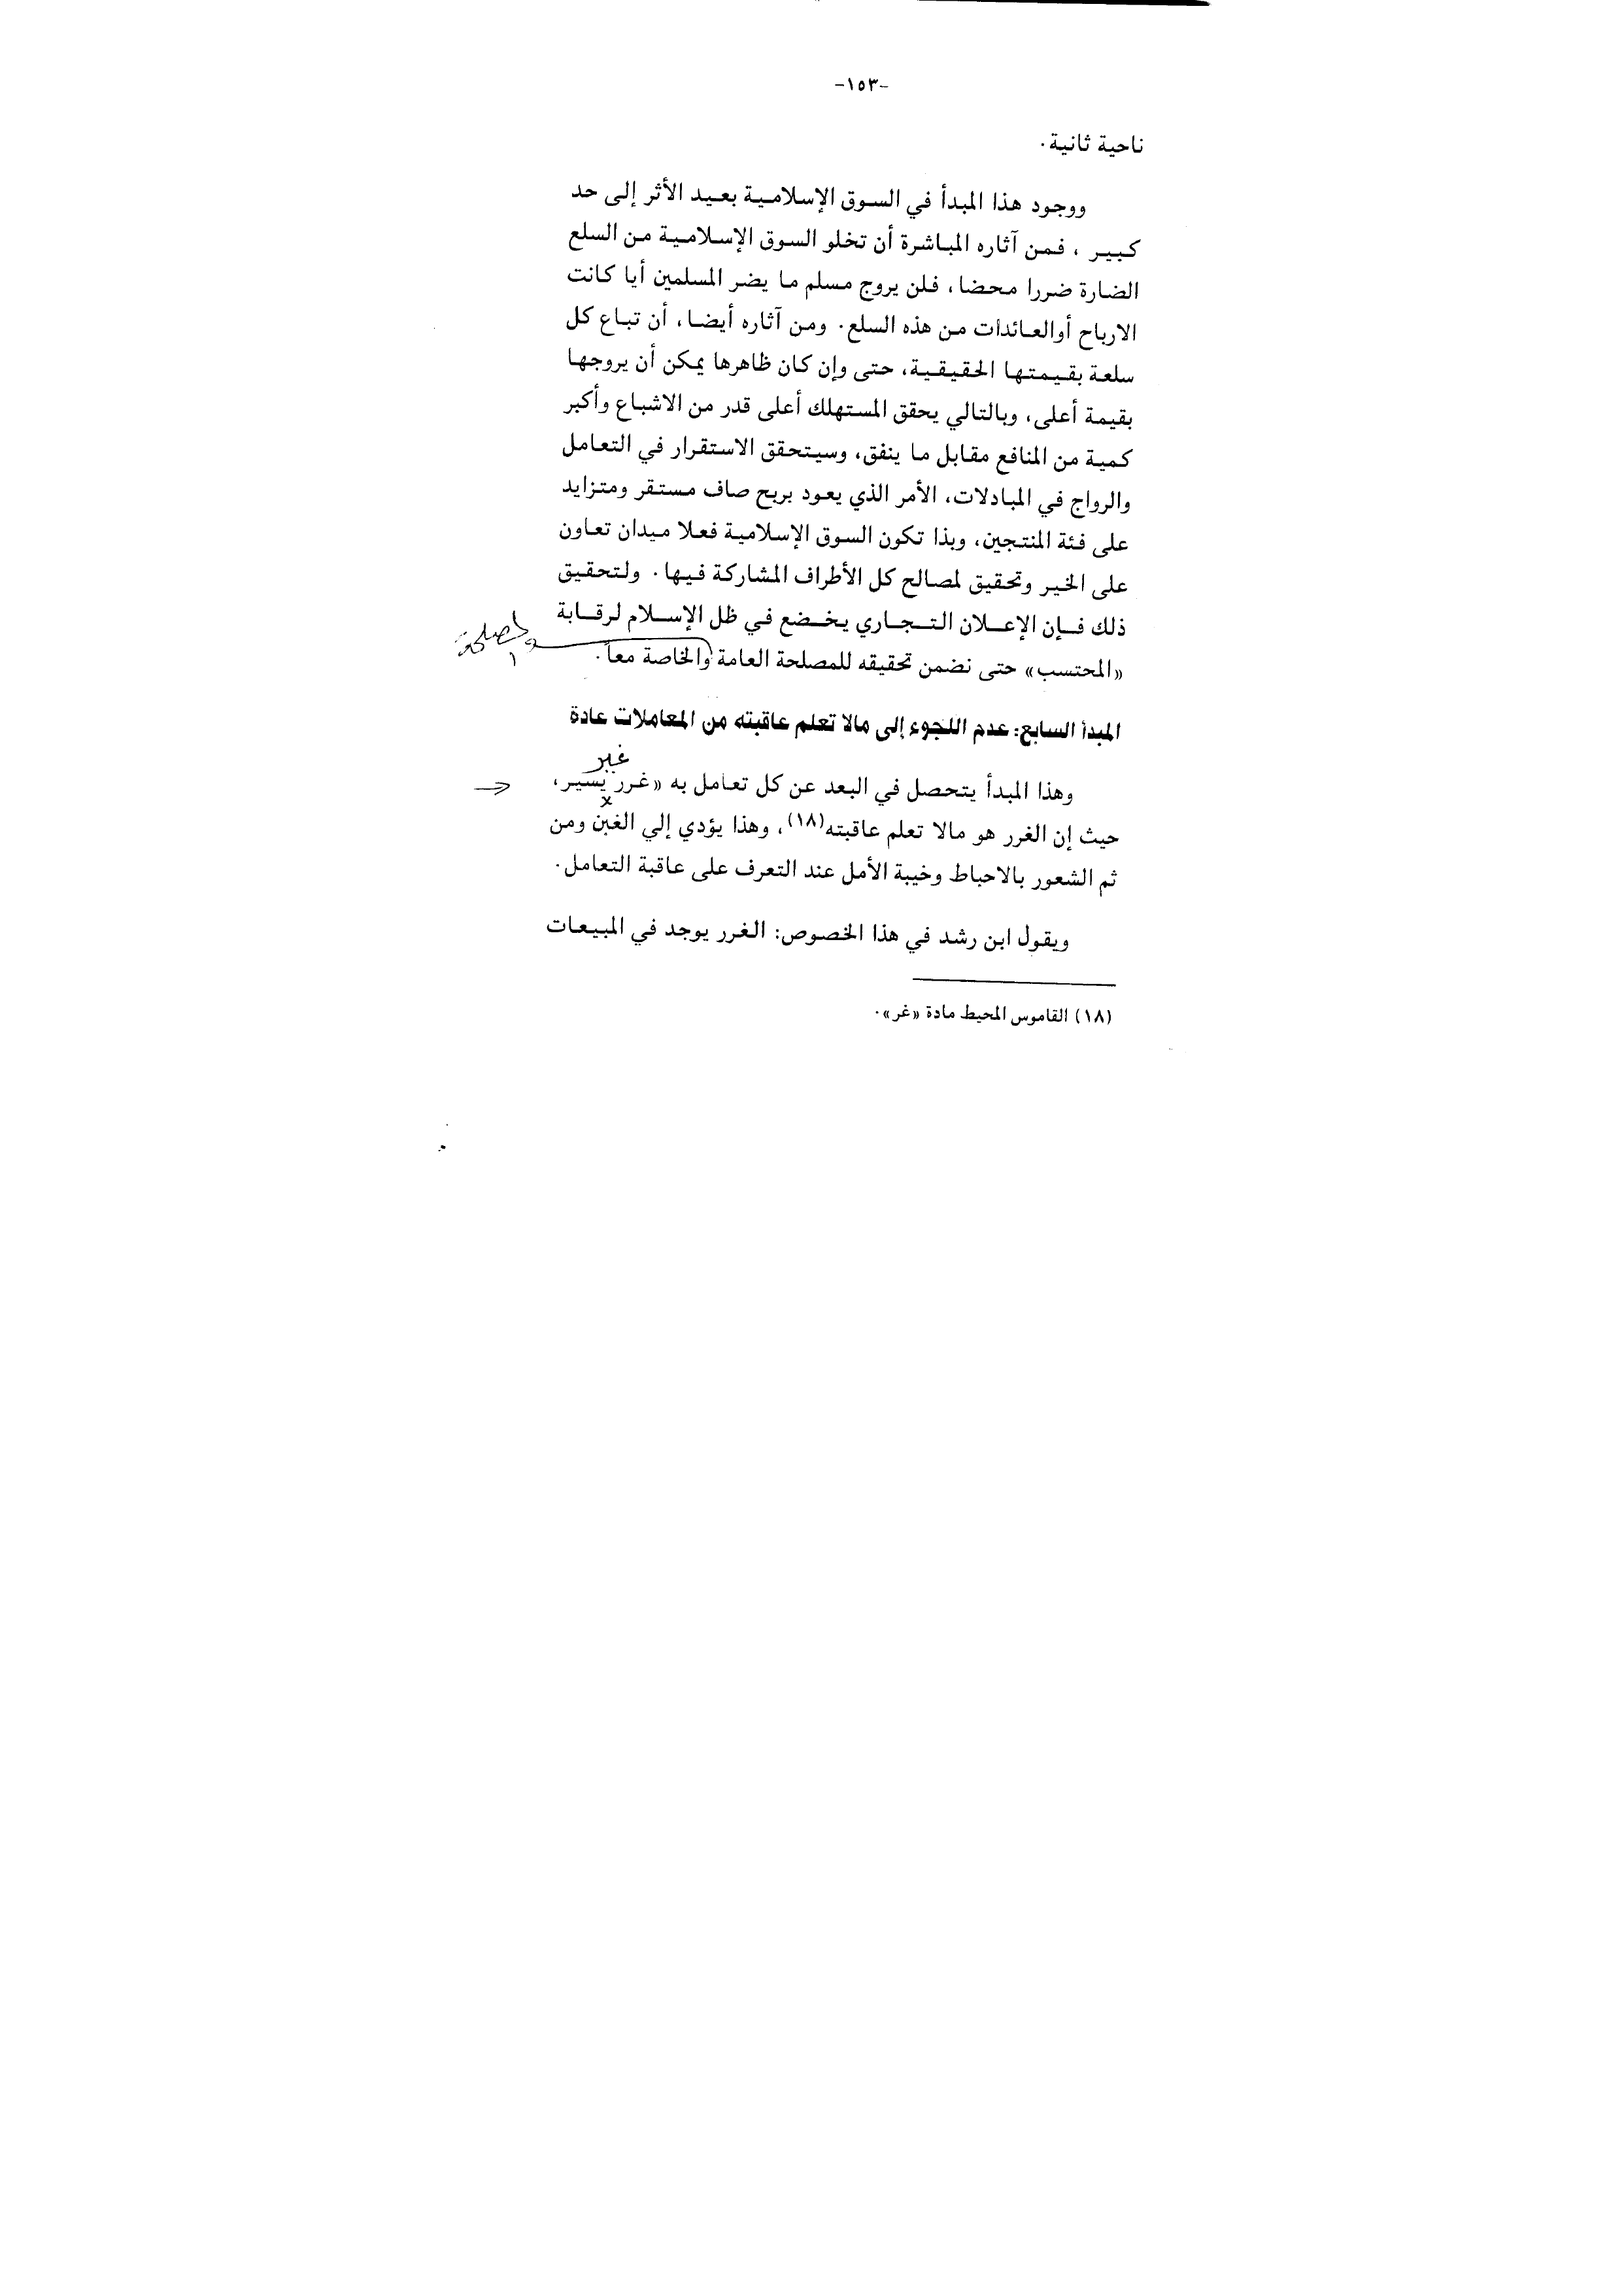 -١٥٣-
ناحية ثانية.
ووجود هذا المبدأ في السوق الإسلامية بعيد الأثر إلى حد
كبير ، فمن آثاره المباشرة أن تخلو السوق الإسلامية من السلع
الضارة ضررا محضا، فلن يروج مسلم ما يضر المسلمين أيا كانت
الارباح أوالعائدات من هذه السلع. ومن آثاره أيضا، أن تباع كل
سلعة بقيمتها الحقيقية، حتى وإن كان ظاهرها يمكن أن يروجها
بقيمة أعلى، وبالتالي يحقق المستهلك أعلى قدر من الاشباع وأكبر
كمية من المنافع مقابل ما ينفق، وسيتحقق الاستقرار في التعامل
والرواج في المبادلات، الأمر الذي يعود بربح صاف مستقر ومتزايد
على فئة المنتجين، وبذا تكون السوق الإسلامية فعلا ميدان تعاون
على الخير وتحقيق لمصالح كل الأطراف المشاركة فيها. ولتحقيق
ذلك فإن الإعلان التجاري يخضع في ظل الإسلام لرقابة
«المحتسب» حتى نضمن تحقيقه للمصلحة العامة والخاصة معاً.
المبدأ السابع: عدم اللجوء إلى مالا تعلم عاقبته من المعاملات عادة
غير
وهذا المبدأ يتحصل في البعد عن كل تعامل به «غرر يسير،
حيث إن الغرر هو مالا تعلم عاقبته(١٨)، وهذا يؤدي إلي الغبن ومن
ثم الشعور بالاحباط وخيبة الأمل عند التعرف على عاقبة التعامل.
ويقول ابن رشد في هذا الخصوص: الغرر يوجد في المبيعات
(١٨) القاموس المحيط مادة «غر».